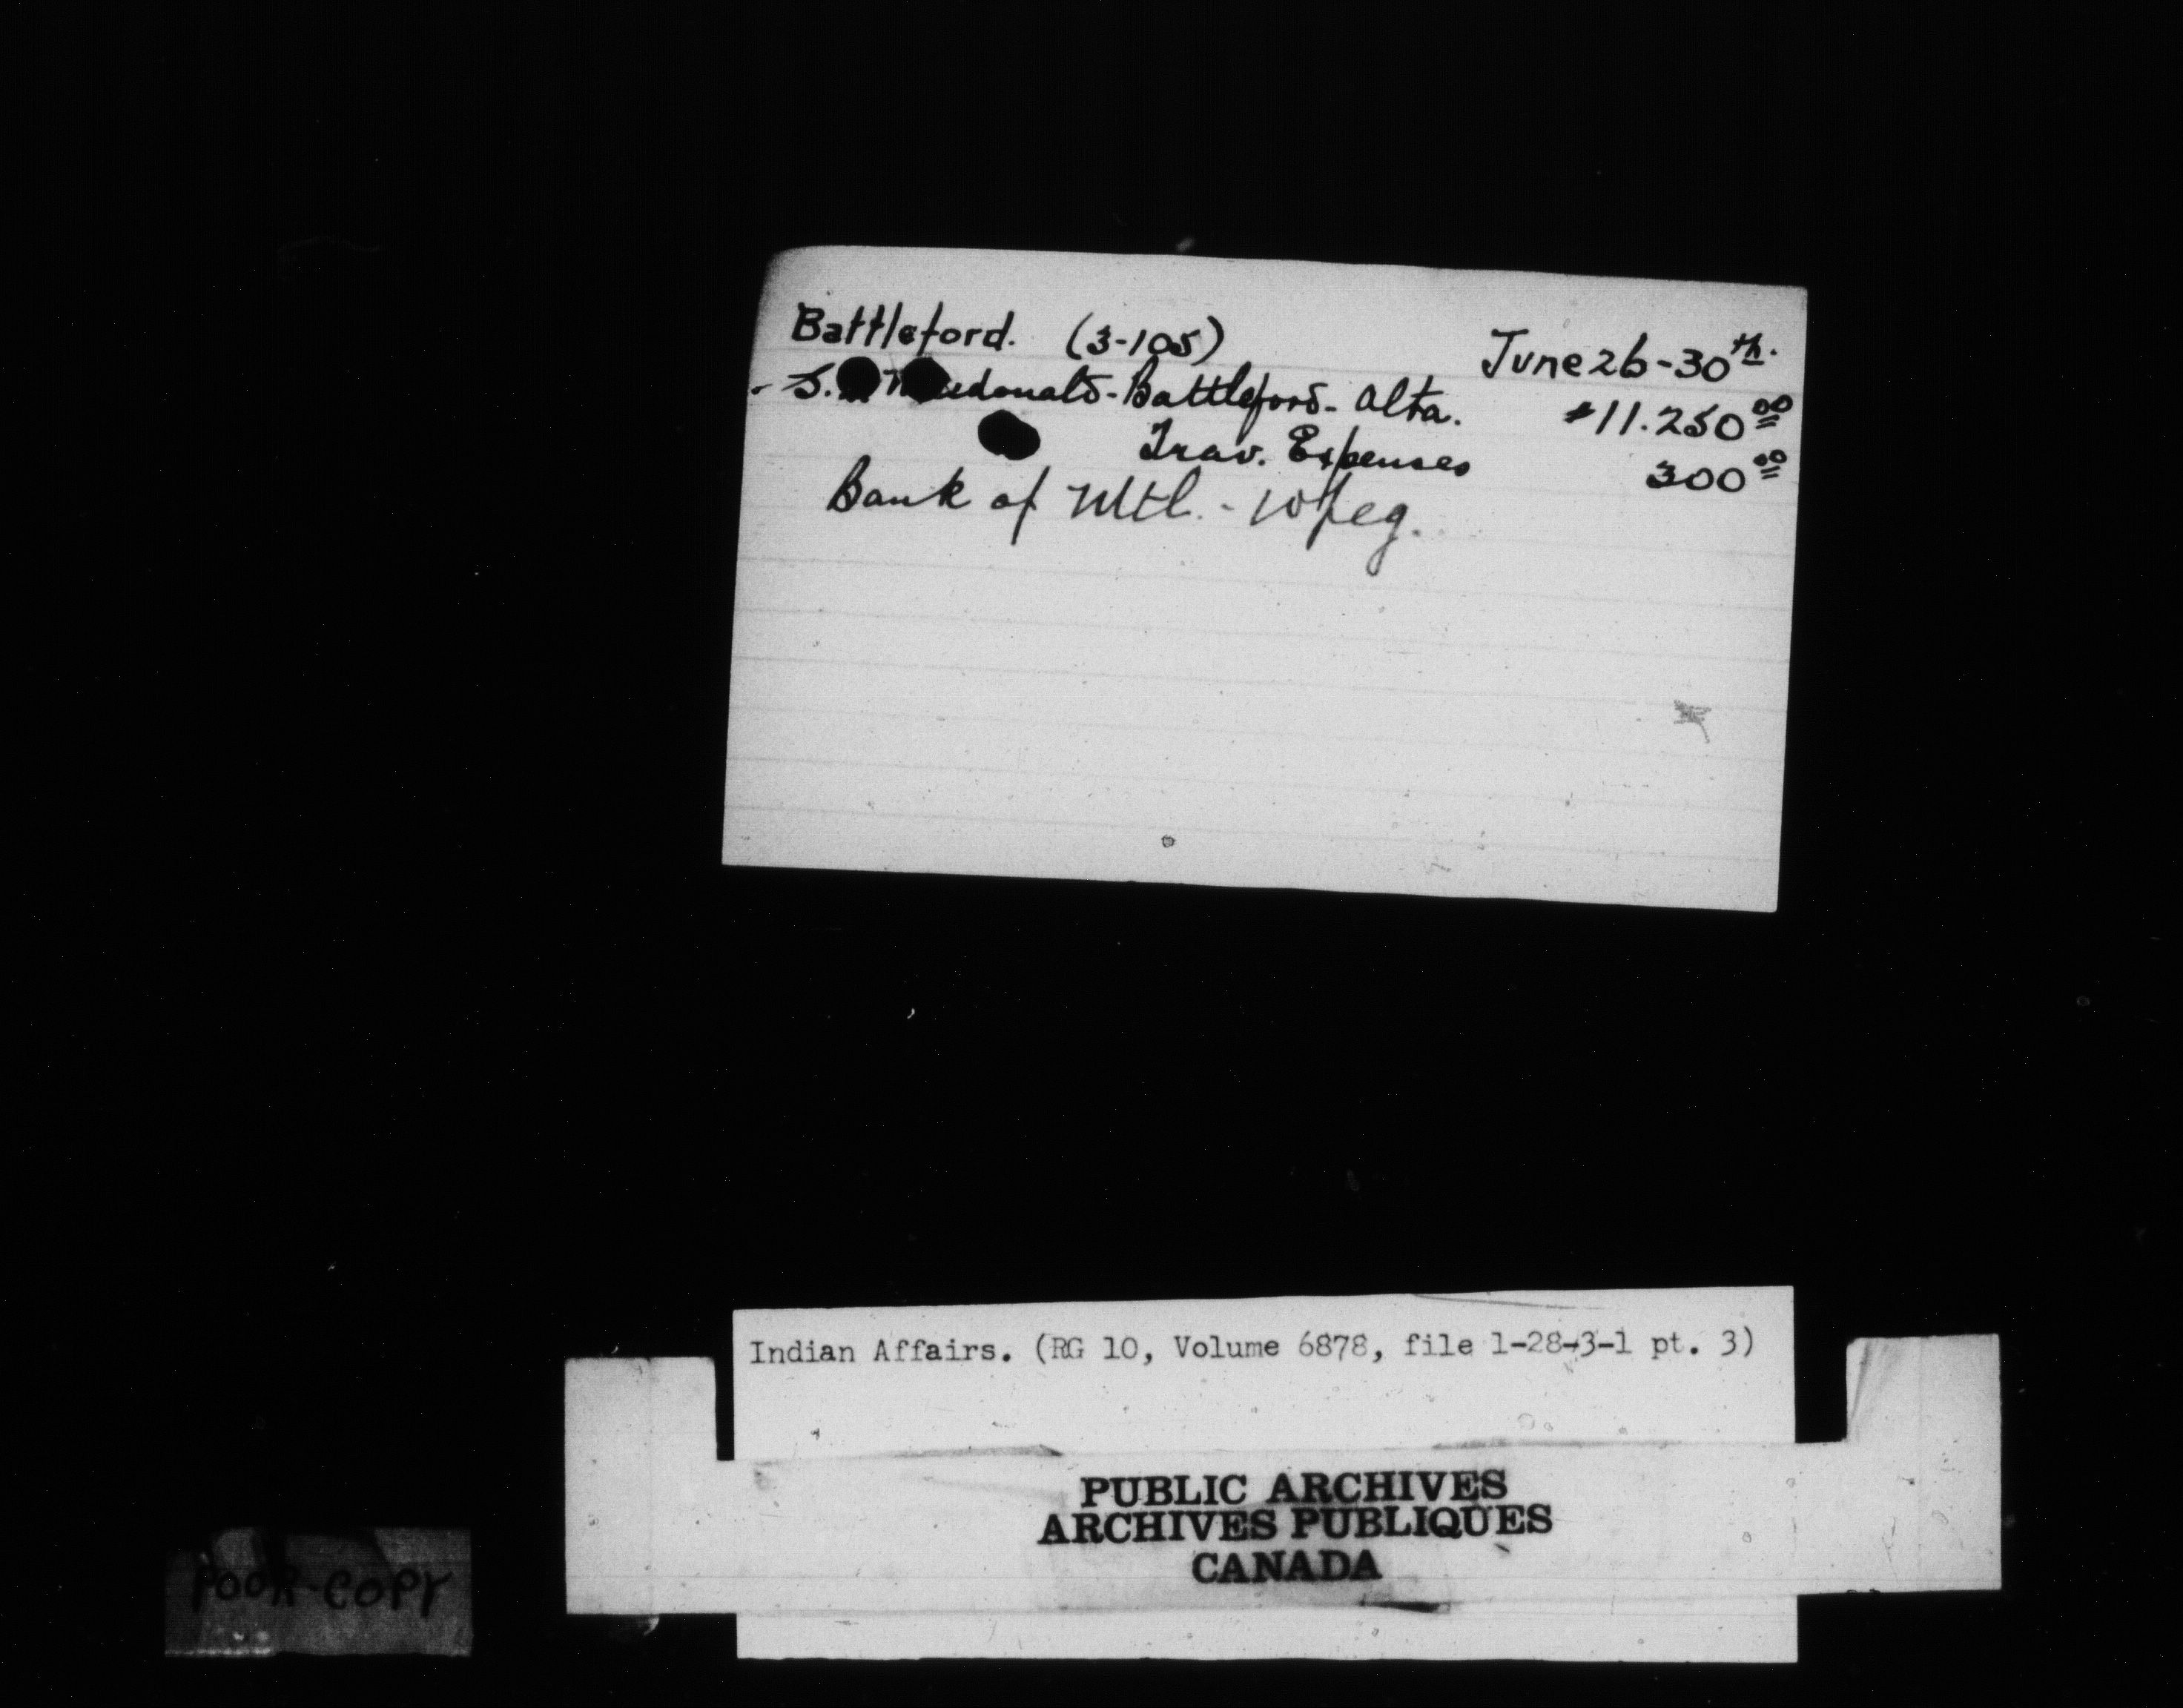 Battleford. (3-105) June 26-30th.
S. Macdonald - Battleford - Alta. $11.250 00
Trav. Expenses 300 00
Bank of Mtl. - Wpeg.
Indian Affairs. (RG 10, Volume 6878, file 1-28-3-1 pt. 3)
PUBLIC ARCHIVES
ARCHIVES PUBLIQUES
CANADA
POOR-COPY